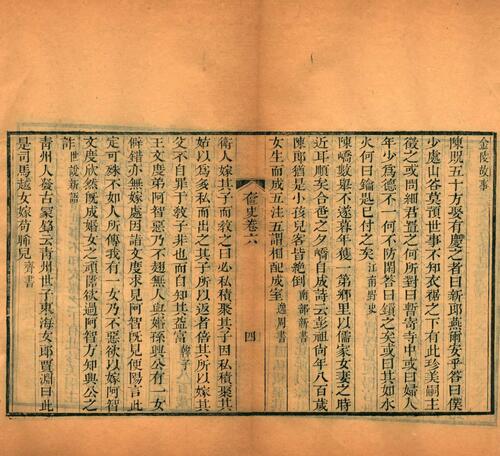 金陵故事
陳覬五十方娶有慶之者曰新郎燕爾安乎答曰僕
少處山谷莫預世事不知衣裾之下有此珍美嗣主
徵之或問細君置之何所對曰暫寄寺中或曰婦人
年少爲德不一何不防閑答曰鎖之矣或曰其如水
火何曰鑰匙已付之矣江南野史
陳嶠數舉不遂暮年獲一第鄉里以儒家女妻之時
近耳順矣合卺之夕嶠自成詩云彭祖尚年八百歲
陳郎猶是小孩兒客皆絶倒南部新書
女生而成五注五謂相配成室逸周書
奩史卷六
四
衛人嫁其子而敎之曰必私積聚其子因私積聚其
姑以爲多私而出之其子所以返者倍其所以嫁其
父不自罪于敎子非也而自知其益富韓子
王文度弟阿智惡乃不翅無人與婚孫興公有一女
僻錯亦無嫁處因詣文度求見阿智旣見便陽言此
定可殊不如人所傳我有一女乃不惡欲以嫁阿智
文度欣然旣成婚女之頑嚚欲過阿智方知興公之
詐世說新語
靑州人發古冢銘云靑州世子東海女郎賈淵曰此
是司馬越女嫁苟晞兒齊書